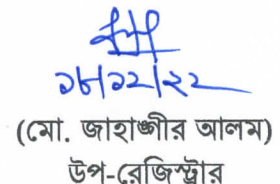 ১৮/১২/২২
(মো. জাহাঙ্গীর আলম)
উপ-রেজিস্ট্রার